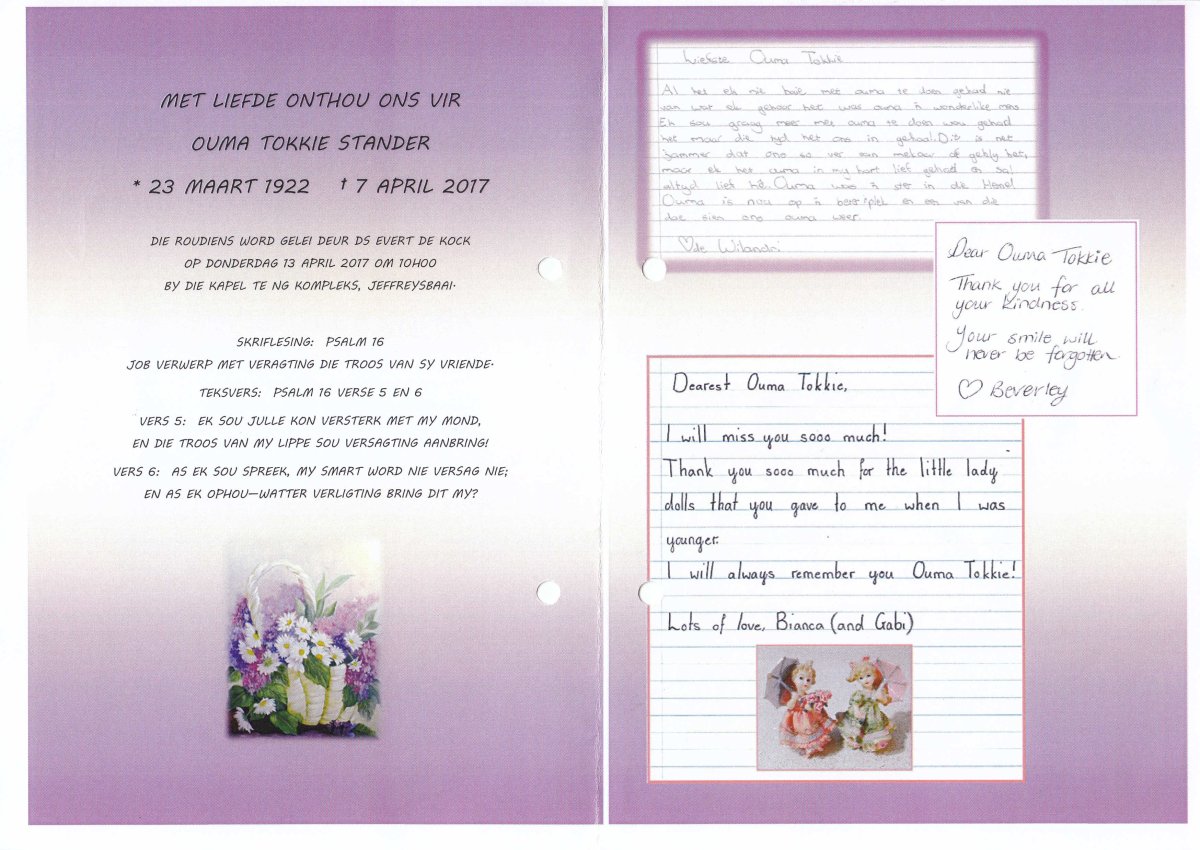 MET LIEFDE ONTHOU ONS VIR
OUMA TOKKIE STANDER
* 23 MAART 1922 † 7 APRIL 2017
DIE ROUDIENS WORD GELEI DEUR DS EVERT DE KOCK
OP DONDERDAG 13 APRIL 2017 OM 10H00
BY DIE KAPEL TE NG KOMPLEKS, JEFFREYSBAAI.
SKRIFLESING: PSALM 16
JOB VERWERP MET VERAGTING DIE TROOS VAN SY VRIENDE.
TEKSVERS: PSALM 16 VERSE 5 EN 6
VERS 5: EK SOU JULLE KON VERSTERK MET MY MOND,
EN DIE TROOS VAN MY LIPPE SOU VERSAGTING AANBRING!
VERS 6: AS EK SOU SPREEK, MY SMART WORD NIE VERSAG NIE;
EN AS EK OPHOU—WATTER VERLIGTING BRING DIT MY?
Liefste Ouma Tokkie
Al het ek nie baie met ouma te doen gehad nie
van wat ek gehoor het was ouma 'n wonderlike mens
Ek sou graag meer met ouma te doen wou gehad
het maar die tyd het ons in gehaal. Dit is net
jammer dat ons so ver van mekaar af gebly het,
maar ek het ouma in my hart lief gehad en sal
altyd lief hê. Ouma was 'n ster in die Hemel
Ouma is nou op 'n beter plek en een van die
dae sien ons ouma weer.
♡de Wilandri
Dear Ouma Tokkie
Thank you for all
your kindness.
Your smile will
never be forgotten.
♡ Beverley
Dearest Ouma Tokkie,
I will miss you sooo much!
Thank you sooo much for the little lady
dolls that you gave to me when I was
younger.
I will always remember you Ouma Tokkie!
Lots of love, Bianca (and Gabi)